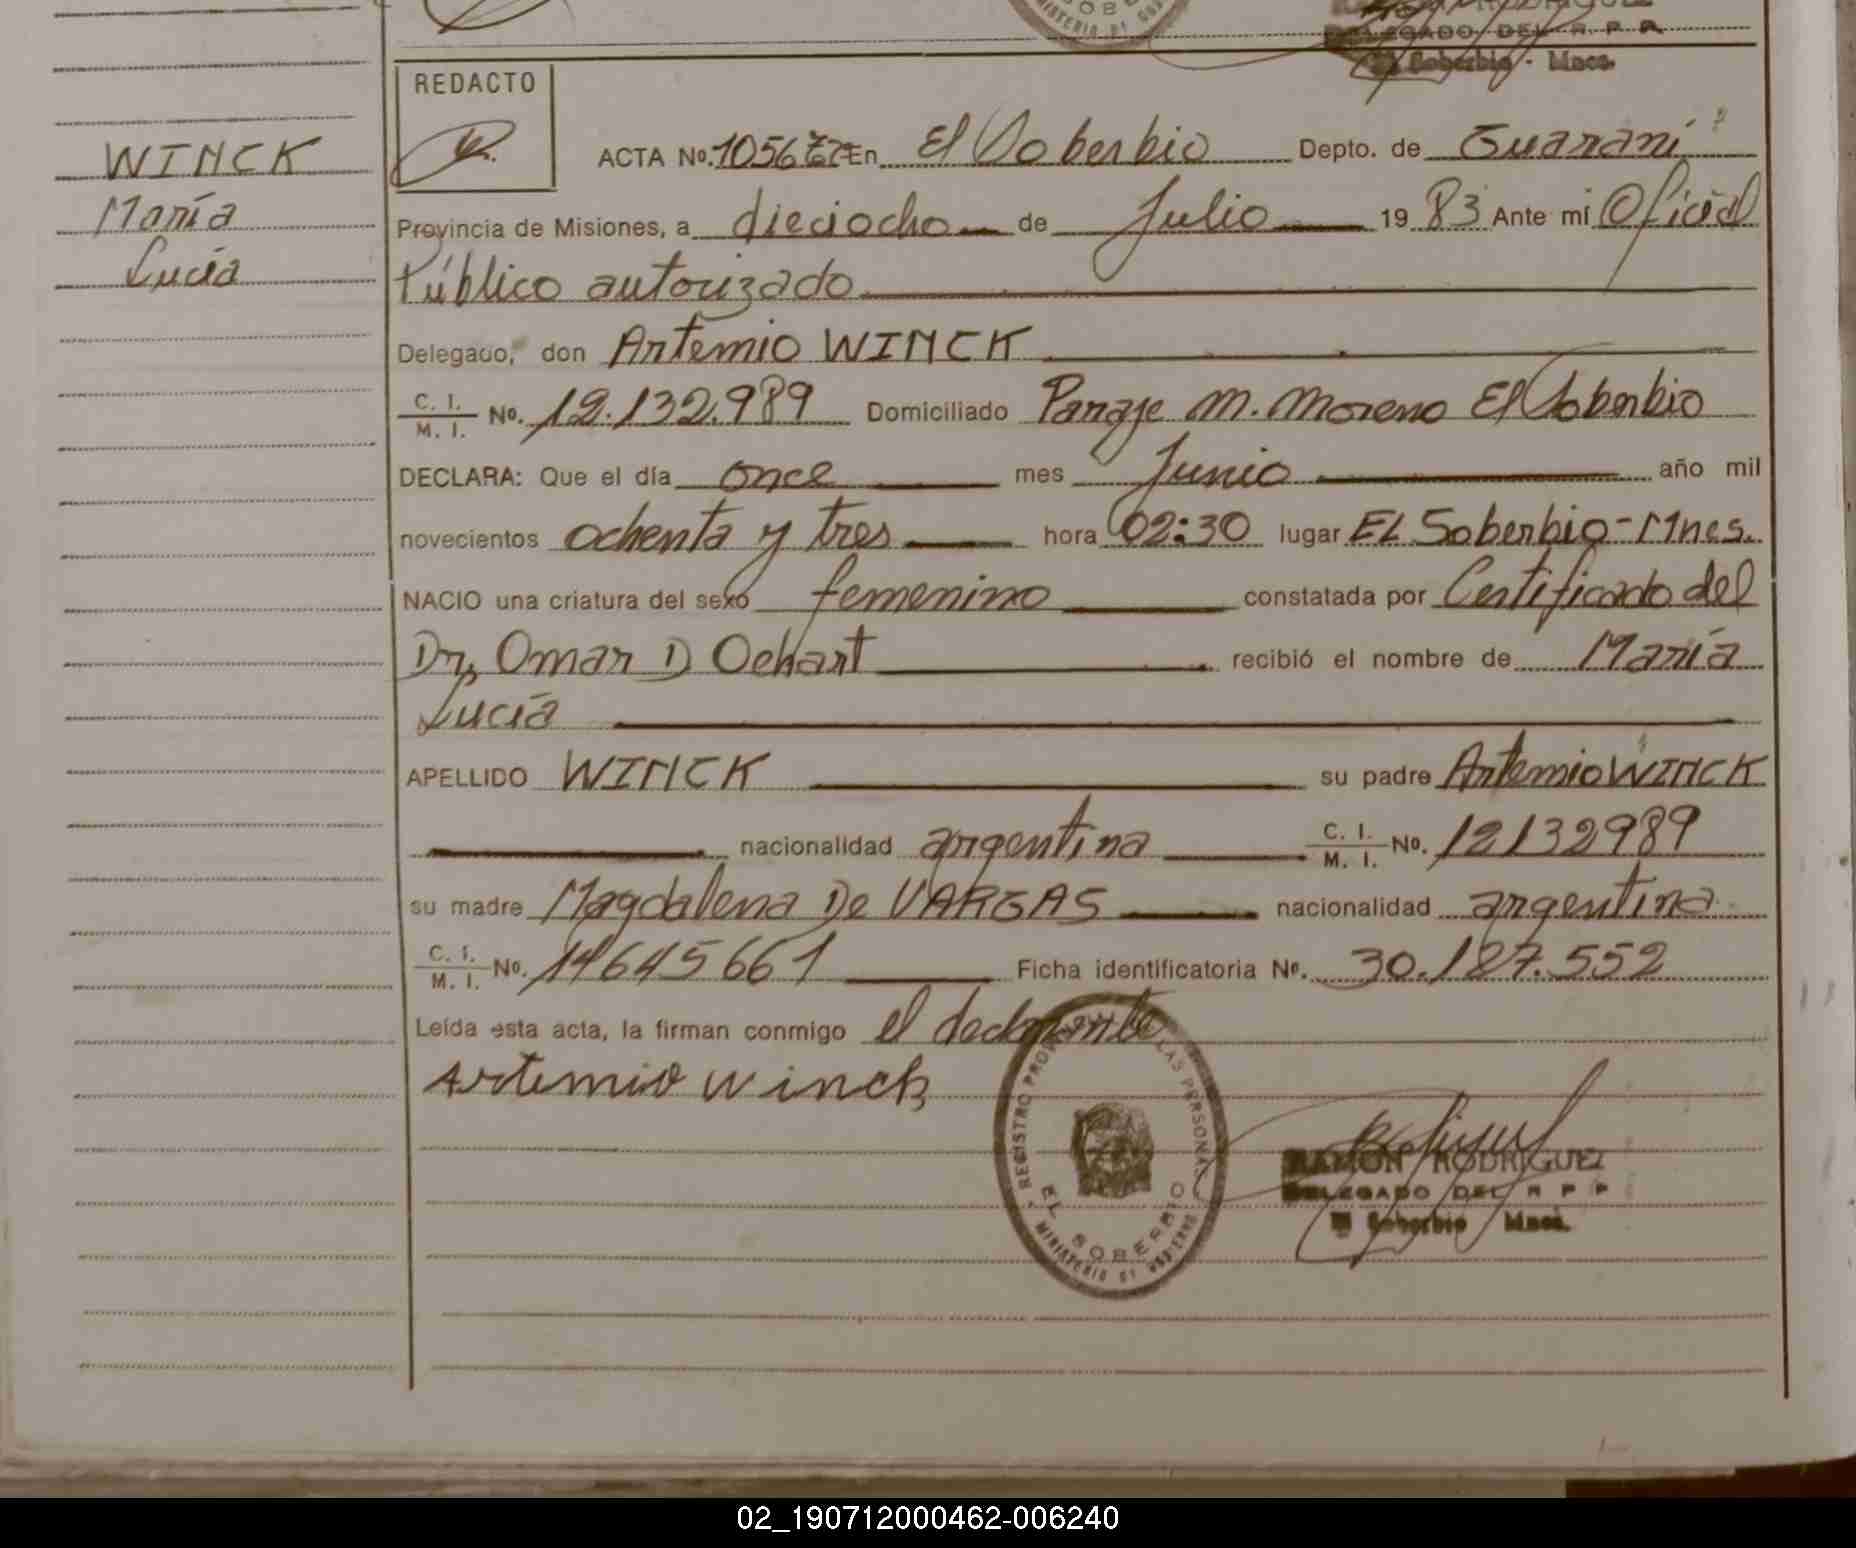 SOBE
MINISTERIO DE GOB
DELEGADO DEL R. P. P.
El Soberbio - Mnes.
REDACTO
WINCK
María
Lucía
ACTA No. En El Soberbio Depto. de Guaraní
Provincia de Misiones, a dieciocho de Julio 19 83 Ante mí Oficial
Público autorizado
Delegado, don Artemio WINCK
C. I.
M. I. No. 12.132.989 Domiciliado Paraje M. Moreno El Soberbio
DECLARA: Que el día once mes Junio año mil
novecientos ochenta y tres hora 02:30 lugar EL Soberbio-Mnes.
NACIO una criatura del sexo femenino constatada por Certificado del
Dr. Omar D Ochart recibió el nombre de María
Lucía
APELLIDO WINCK su padre Artemio WINCK
nacionalidad argentina C. I.
M. I. No. 12132989
su madre Magdalena De VARGAS nacionalidad argentina
C. I.
M. I. No. 14645661 Ficha identificatoria No. 30.187.552
Leída esta acta, la firman conmigo el declarante
Artemio Winck
REGISTRO PROVINCIAL DE LAS PERSONAS
EL SOBERBIO
MINISTERIO DE GOBIERNO
RAMON RODRIGUEZ
DELEGADO DEL R P P
El Soberbio Mnes.
02_190712000462-006240